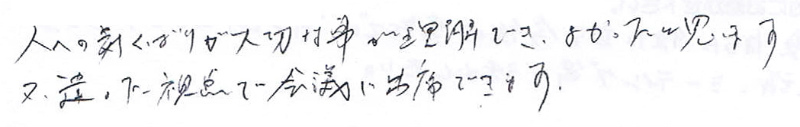 人への気くばりが大切な事が理解でき、よかったと思います
又、違った視点で会議に出席できます.